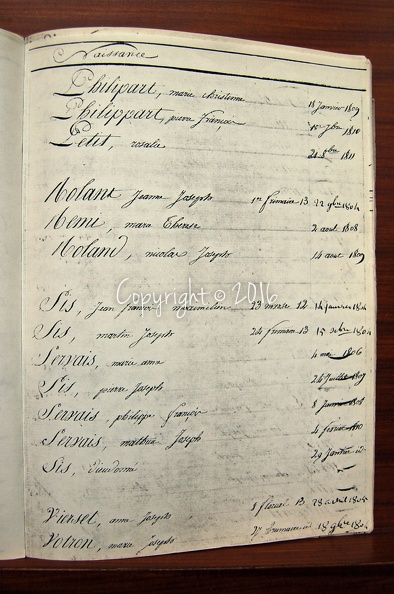 Naissance
Philipart, marie christinne 18 Janvier 1809
Philippart, pierre françois 10 7bre 1810
Petit, rosalie 21 8bre 1811
Rolant Jeanne Josephe 1er frimaire 13 22 9bre 1804
Remi, marie Therese 2 aout 1808
Roland, nicolas Joseph 14 aout 1809
Copyright © 2016
Sis, Jean francois maximilien 23 nivose 12 14 janvier 1804
Sis, martin Joseph 24 frimaire 13 15 xbre 1804
Servais, marie anne 4 mai 1806
Sis, pierre Joseph 24 Juillet 1807
Servais, philippe françois 8 Janvier 1808
Servais, mathieu Joseph 4 fevrier 1810
Sis, Dieudonné 29 Janvier id
Vierset, anne Josephe 8 floreal 13 28 avril 1805
Votron, marie Josephe 27 brumaire id 18 9bre 1804